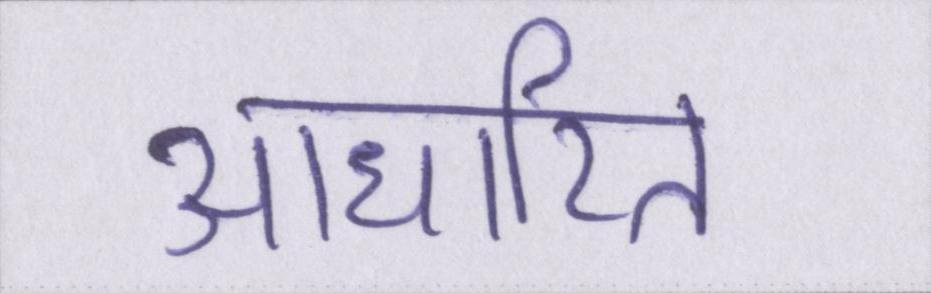 आधारित